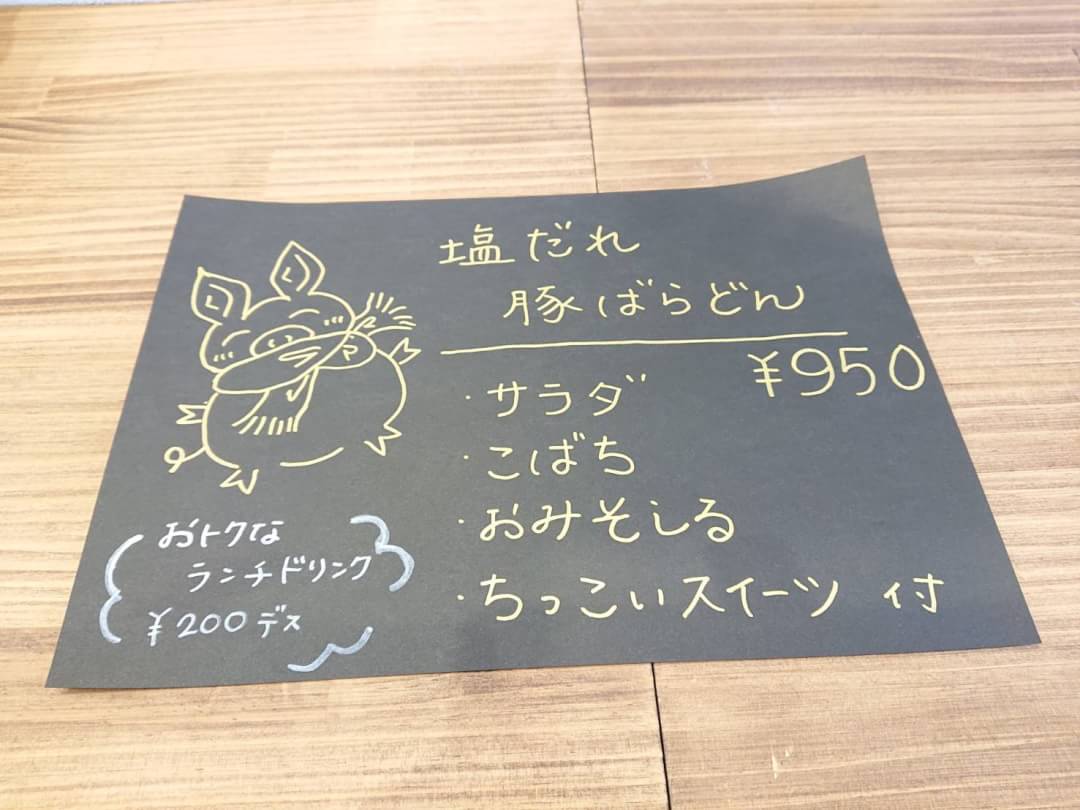 塩だれ
豚ばらどん
¥950
・サラダ
・こばち
・おみそしる
・ちっこいスイーツ 付
おトクな
ランチドリンク
¥200デス